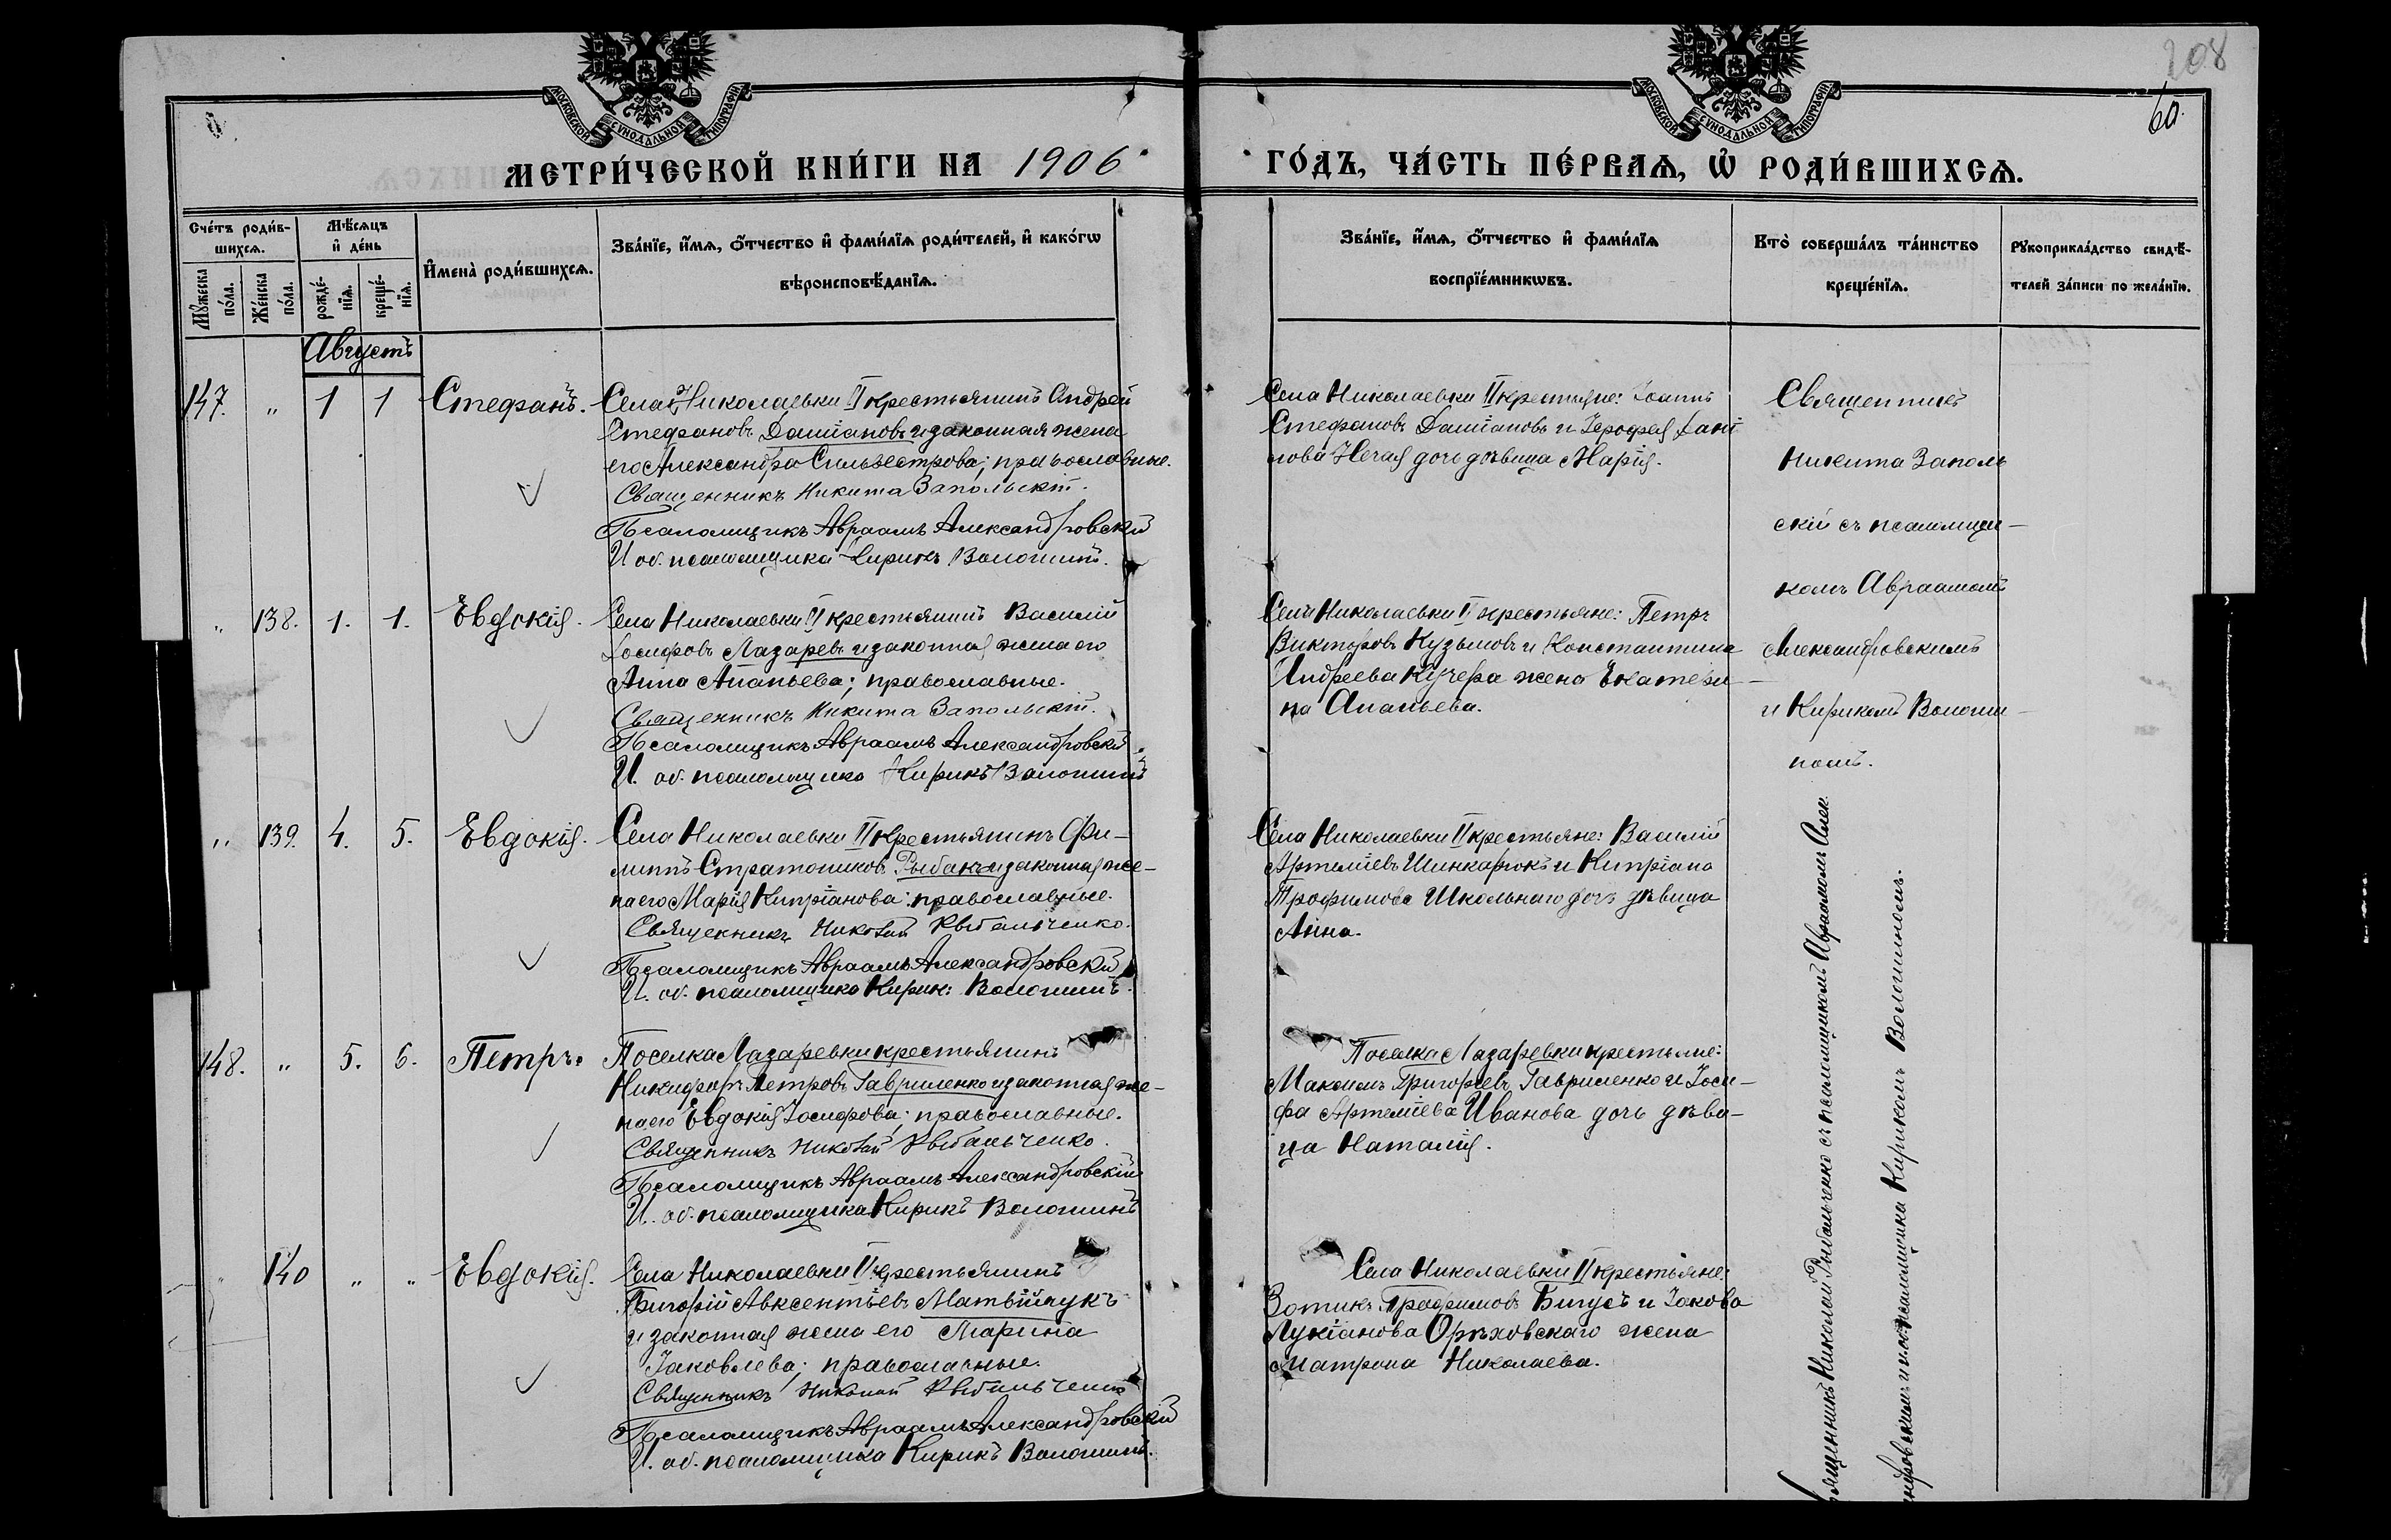 208
60.
МОСКОВСКОЙ СУНОДАЛЬНОЙ ТИПОГРАФІИ
МОСКОВСКОЙ СУНОДАЛЬНОЙ ТИПОГРАФІИ
МЕТРИ́ЧЕСКОЙ КНИ́ГИ НА 1906
ГО́ДЪ, ЧА́СТЬ ПЕ́РВАѦ, Ѡ҆ РОДИ́ВШИХСѦ.
Сче́тъ роди́в-
шихсѧ.
Мꙋ́жеска по́ла.
Же́нска по́ла.
Мѣ́сѧцъ
и҆ де́нь
рожде́-
нїѧ.
креще́-
нїѧ.
И҆мена̀ роди́вшихсѧ.
Зва́нїе, и҆́мѧ, ѻ҆́тчество и҆ фами́лїѧ роди́телей, и҆ како́гѡ
вѣроисповѣ́данїѧ.
Зва́нїе, и҆́мѧ, ѻ҆́тчество и҆ фами́лїѧ
воспрїе́мникѡвъ.
Кто̀ соверша́лъ та́инство
креще́нїѧ.
Рꙋкоприкла́дство свидѣ́-
телей за́писи по жела́нїю.
Августъ
147. " 1 1 Стефанъ.
Села Николаевки II крестьянинъ Андрей
Стефановъ Даміановъ и законная жена
его Александра Сильвестрова; православные.
Священникъ Никита Запольскій.
Псаломщикъ Авраамъ Александровскій
И об. псаломщика Кирикъ Волошинъ.
Села Николаевки II крестьяне: Іоаннъ
Стефановъ Даміановъ и Іерофея Дані
лова Нечая дочь дѣвица Марія.
Священникъ
Никита Заполь
скій съ псаломщи-
комъ Авраамомъ
Александровскимъ
и Кирикомъ Волоши-
номъ.
" 138. 1. 1. Евдокія.
Села Николаевки II крестьянинъ Василій
Іосифовъ Лазаревъ и законная жена его
Анна Ананьева; православные.
Священникъ Никита Запольскій.
Псаломщикъ Авраамъ Александровскій
И. об. псаломщика Кирикъ Волошинъ
Села Николаевки II крестьяне: Петръ
Викторовъ Кузьмовъ и Константина
Андреева Кучера жена Екатери-
на Ананьева.
" 139. 4. 5. Евдокія.
Села Николаевки II крестьянинъ Фи-
липпъ Стратониковъ Рыбакъ и законная же-
на его Марія Кипріанова; православные.
Священникъ Николай Рыбальченко.
Псаломщикъ Авраамъ Александровскій
И. об. псаломщика Кирикъ Волошинъ.
Села Николаевки II крестьяне: Василій
Артеміевъ Шинкарюкъ и Кипріана
Трофимова Школьнаго дочь дѣвица
Анна.
148. " 5. 6. Петръ.
Поселка Лазаревки крестьянинъ
Никифоръ Петровъ Гавриленко и законная же-
на его Евдокія Іосифова; православные.
Священникъ Николай Рыбальченко.
Псаломщикъ Авраамъ Александровскій
И. об. псаломщика Кирикъ Волошинъ
Поселка Лазаревки крестьяне:
Максимъ Григорьевъ Гавриленко и Іоси-
фа Артеміева Иванова дочь дѣви-
ца Наталія.
" 140 " " Евдокія.
Села Николаевки II крестьянинъ
Григорій Авксентіевъ Матвійчукъ
и законная жена его Марина
Іаковлева; православные.
Священникъ Николай Рыбальченко
Псаломщикъ Авраамъ Александровскій
И. об. псаломщика Кирикъ Волошинъ.
Села Николаевки II крестьяне:
Зотикъ Трофимовъ Бигусъ и Іакова
Лукіанова Орѣховскаго жена
Матрона Николаева.
Священникъ Николай Рыбальченко съ псаломщикомъ Авраамомъ Алек.
сандровскимъ и и. об. псаломщика Кирикомъ Волошиномъ.